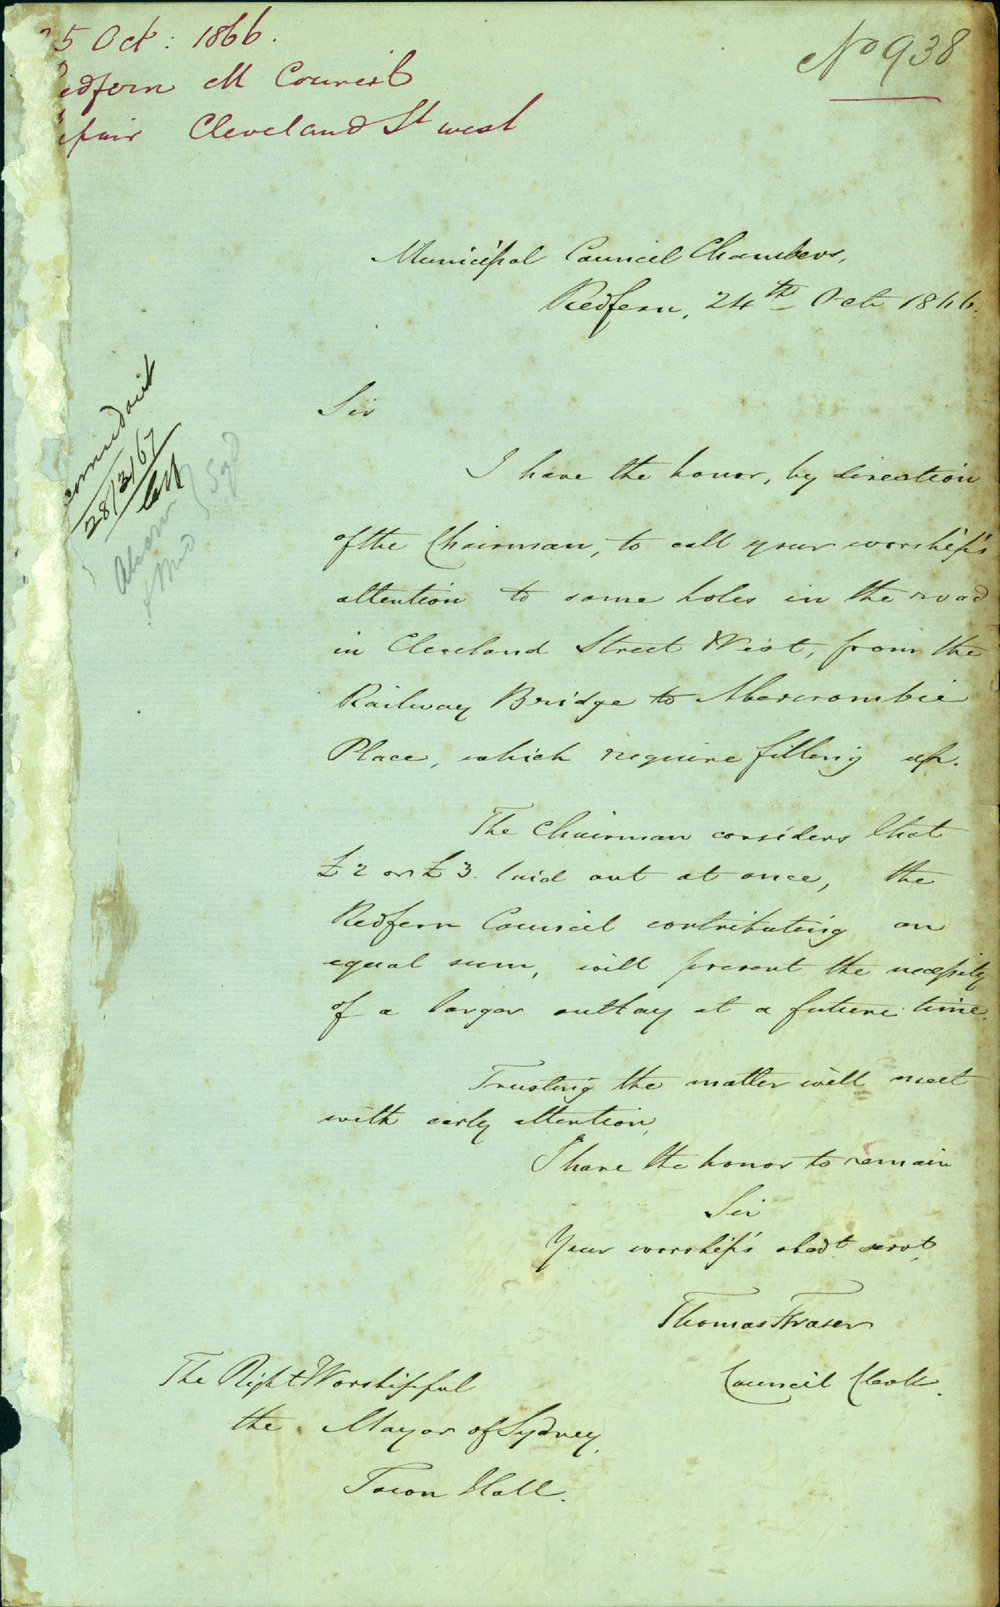 25 Oct: 1866.
Redfern M Council
repair Cleveland St west
No 938
Municipal Council Chambers,
Redfern, 24th Octr 1866.
Sir
I have the honor, by direction
of the Chairman, to call your worship's
attention to some holes in the road
in Cleveland Street West, from the
Railway Bridge to Abercrombie
Place, which require filling up.
The Chairman considers that
£2 or £3 laid out at once, the
Redfern Council contributing an
equal sum, will prevent the necessity
of a larger outlay at a future time.
Trusting the matter will meet
with early attention,
I have the honor to remain
Sir
Your worship's obedt servt,
Thomas Fraser
Council Clerk.
The Right Worshipful
the Mayor of Sydney,
Town Hall.
28/3/67